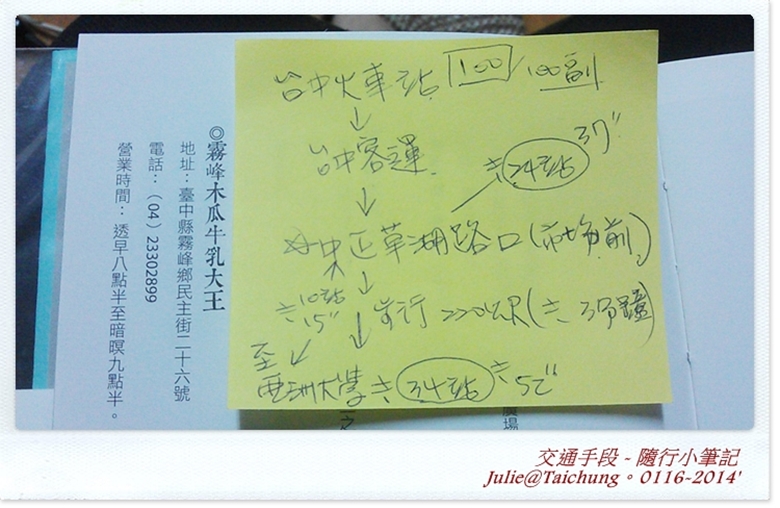 台中火車站 100 / 100副
↓
台中客運
37"
≒ 24站
↓
中正草湖路口(市場前)
↓
≒ 10站
15"
步行 220公尺(≒ 3分鐘)
至
亞洲大學 ≒ 34站 ≒ 52"
◎霧峰木瓜牛乳大王
地址：臺中縣霧峰鄉民主街二十六號
電話：（04）23302899
營業時間：透早八點半至暗暝九點半。
廣場
交通手段 ~ 隨行小筆記
Julie@Taichung。0116~2014'